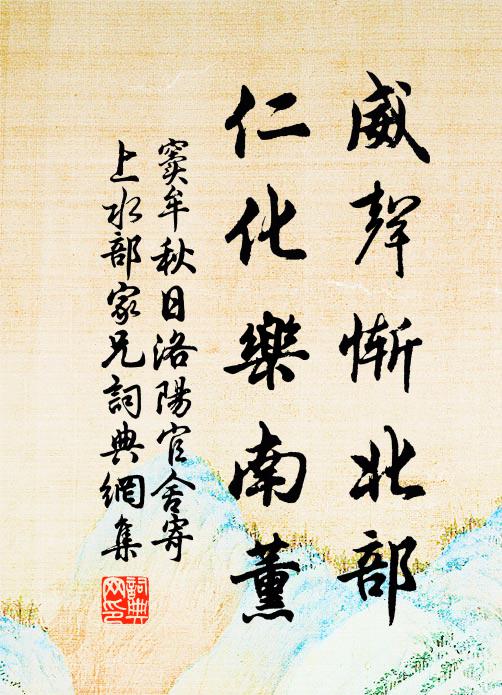 威聲慚北部
仁化樂南薰
竇牟秋日洛陽官舍寄
上水部家兄詞典網集
詞典
网印